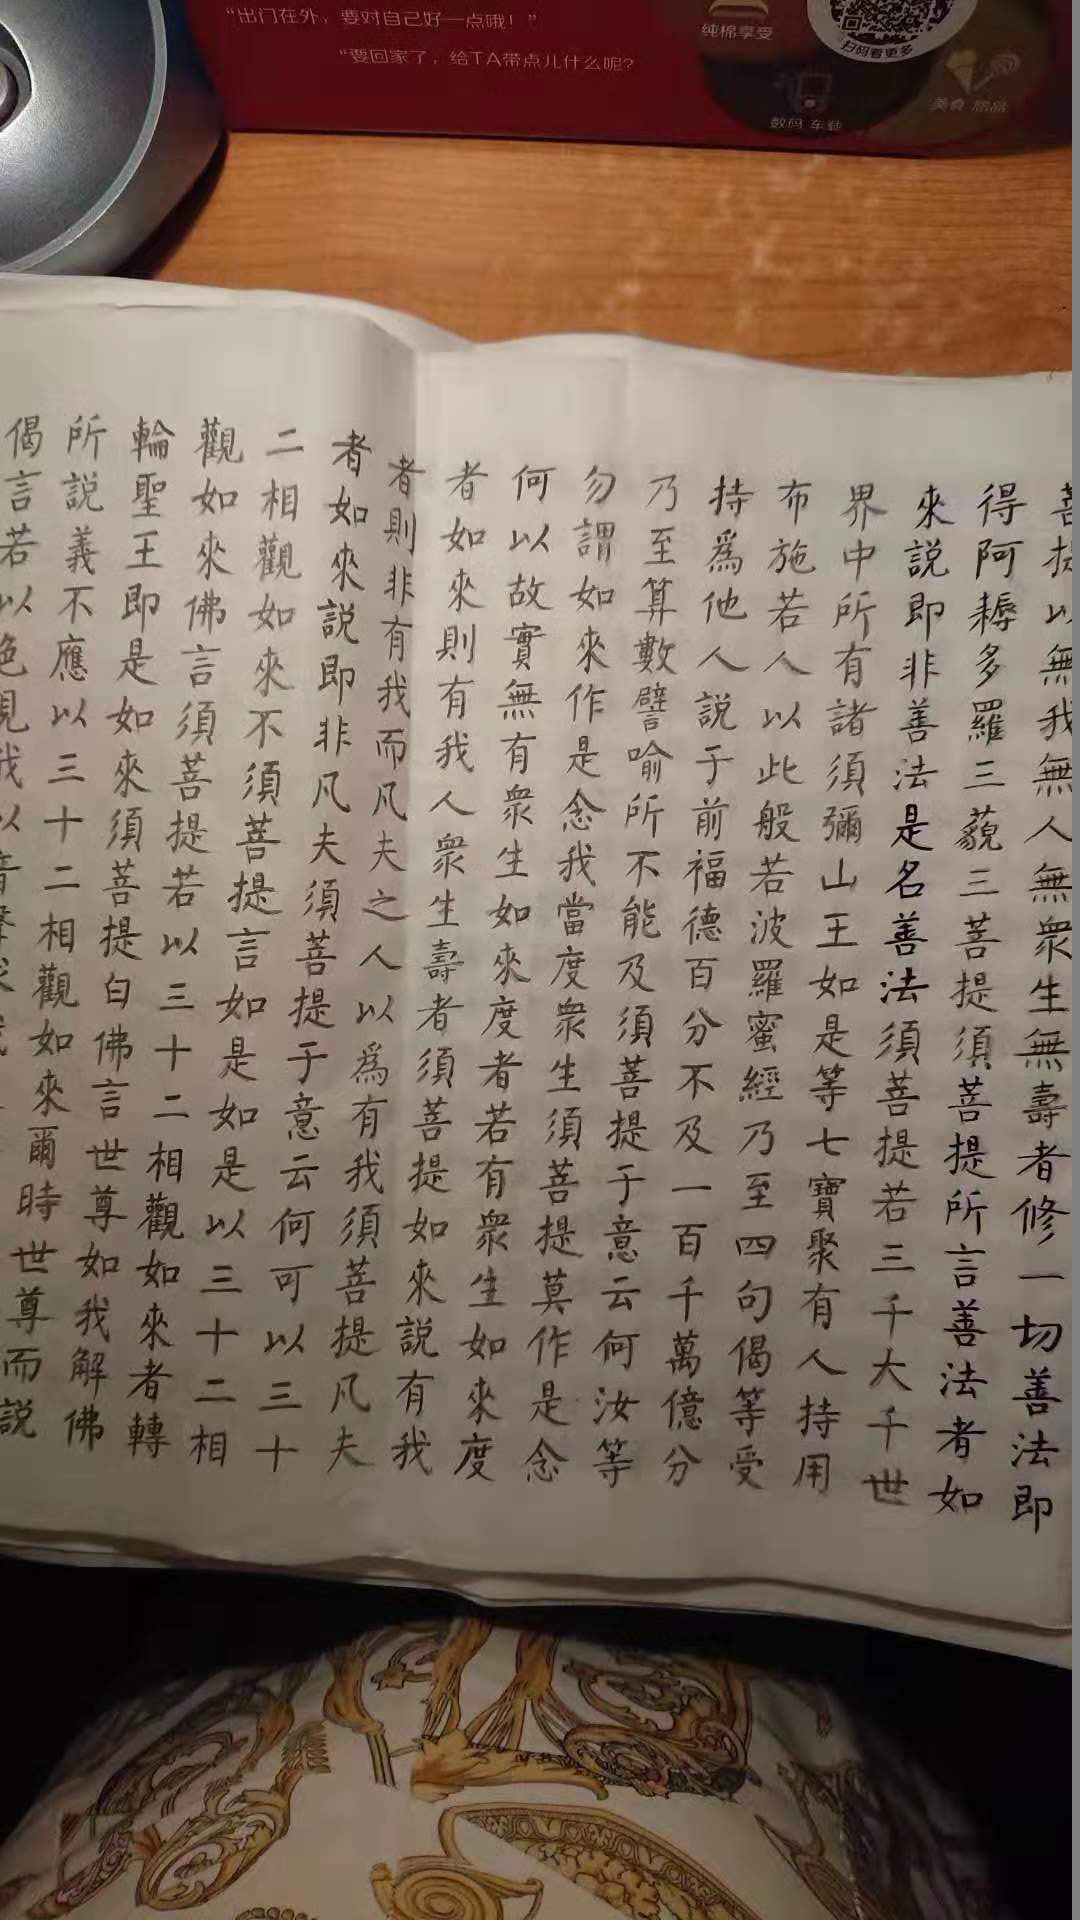 “出门在外，要对自己好一点哦！”
“要回家了，给TA带点儿什么呢？
纯棉享受
扫码看更多
数码 车载
美食
菩提以無我無人無衆生無壽者修一切善法即
得阿耨多羅三藐三菩提須菩提所言善法者如
來説即非善法是名善法須菩提若三千大千世
界中所有諸須彌山王如是等七寶聚有人持用
布施若人以此般若波羅蜜經乃至四句偈等受
持爲他人説于前福德百分不及一百千萬億分
乃至算數譬喻所不能及須菩提于意云何汝等
勿謂如來作是念我當度衆生須菩提莫作是念
何以故實無有衆生如來度者若有衆生如來度
者如來則有我人衆生壽者須菩提如來説有我
者則非有我而凡夫之人以爲有我須菩提凡夫
者如來説即非凡夫須菩提于意云何可以三十
二相觀如來不須菩提言如是如是以三十二相
觀如來佛言須菩提若以三十二相觀如來者轉
輪聖王即是如來須菩提白佛言世尊如我解佛
所説義不應以三十二相觀如來爾時世尊而説
偈言若以色見我以音聲求我